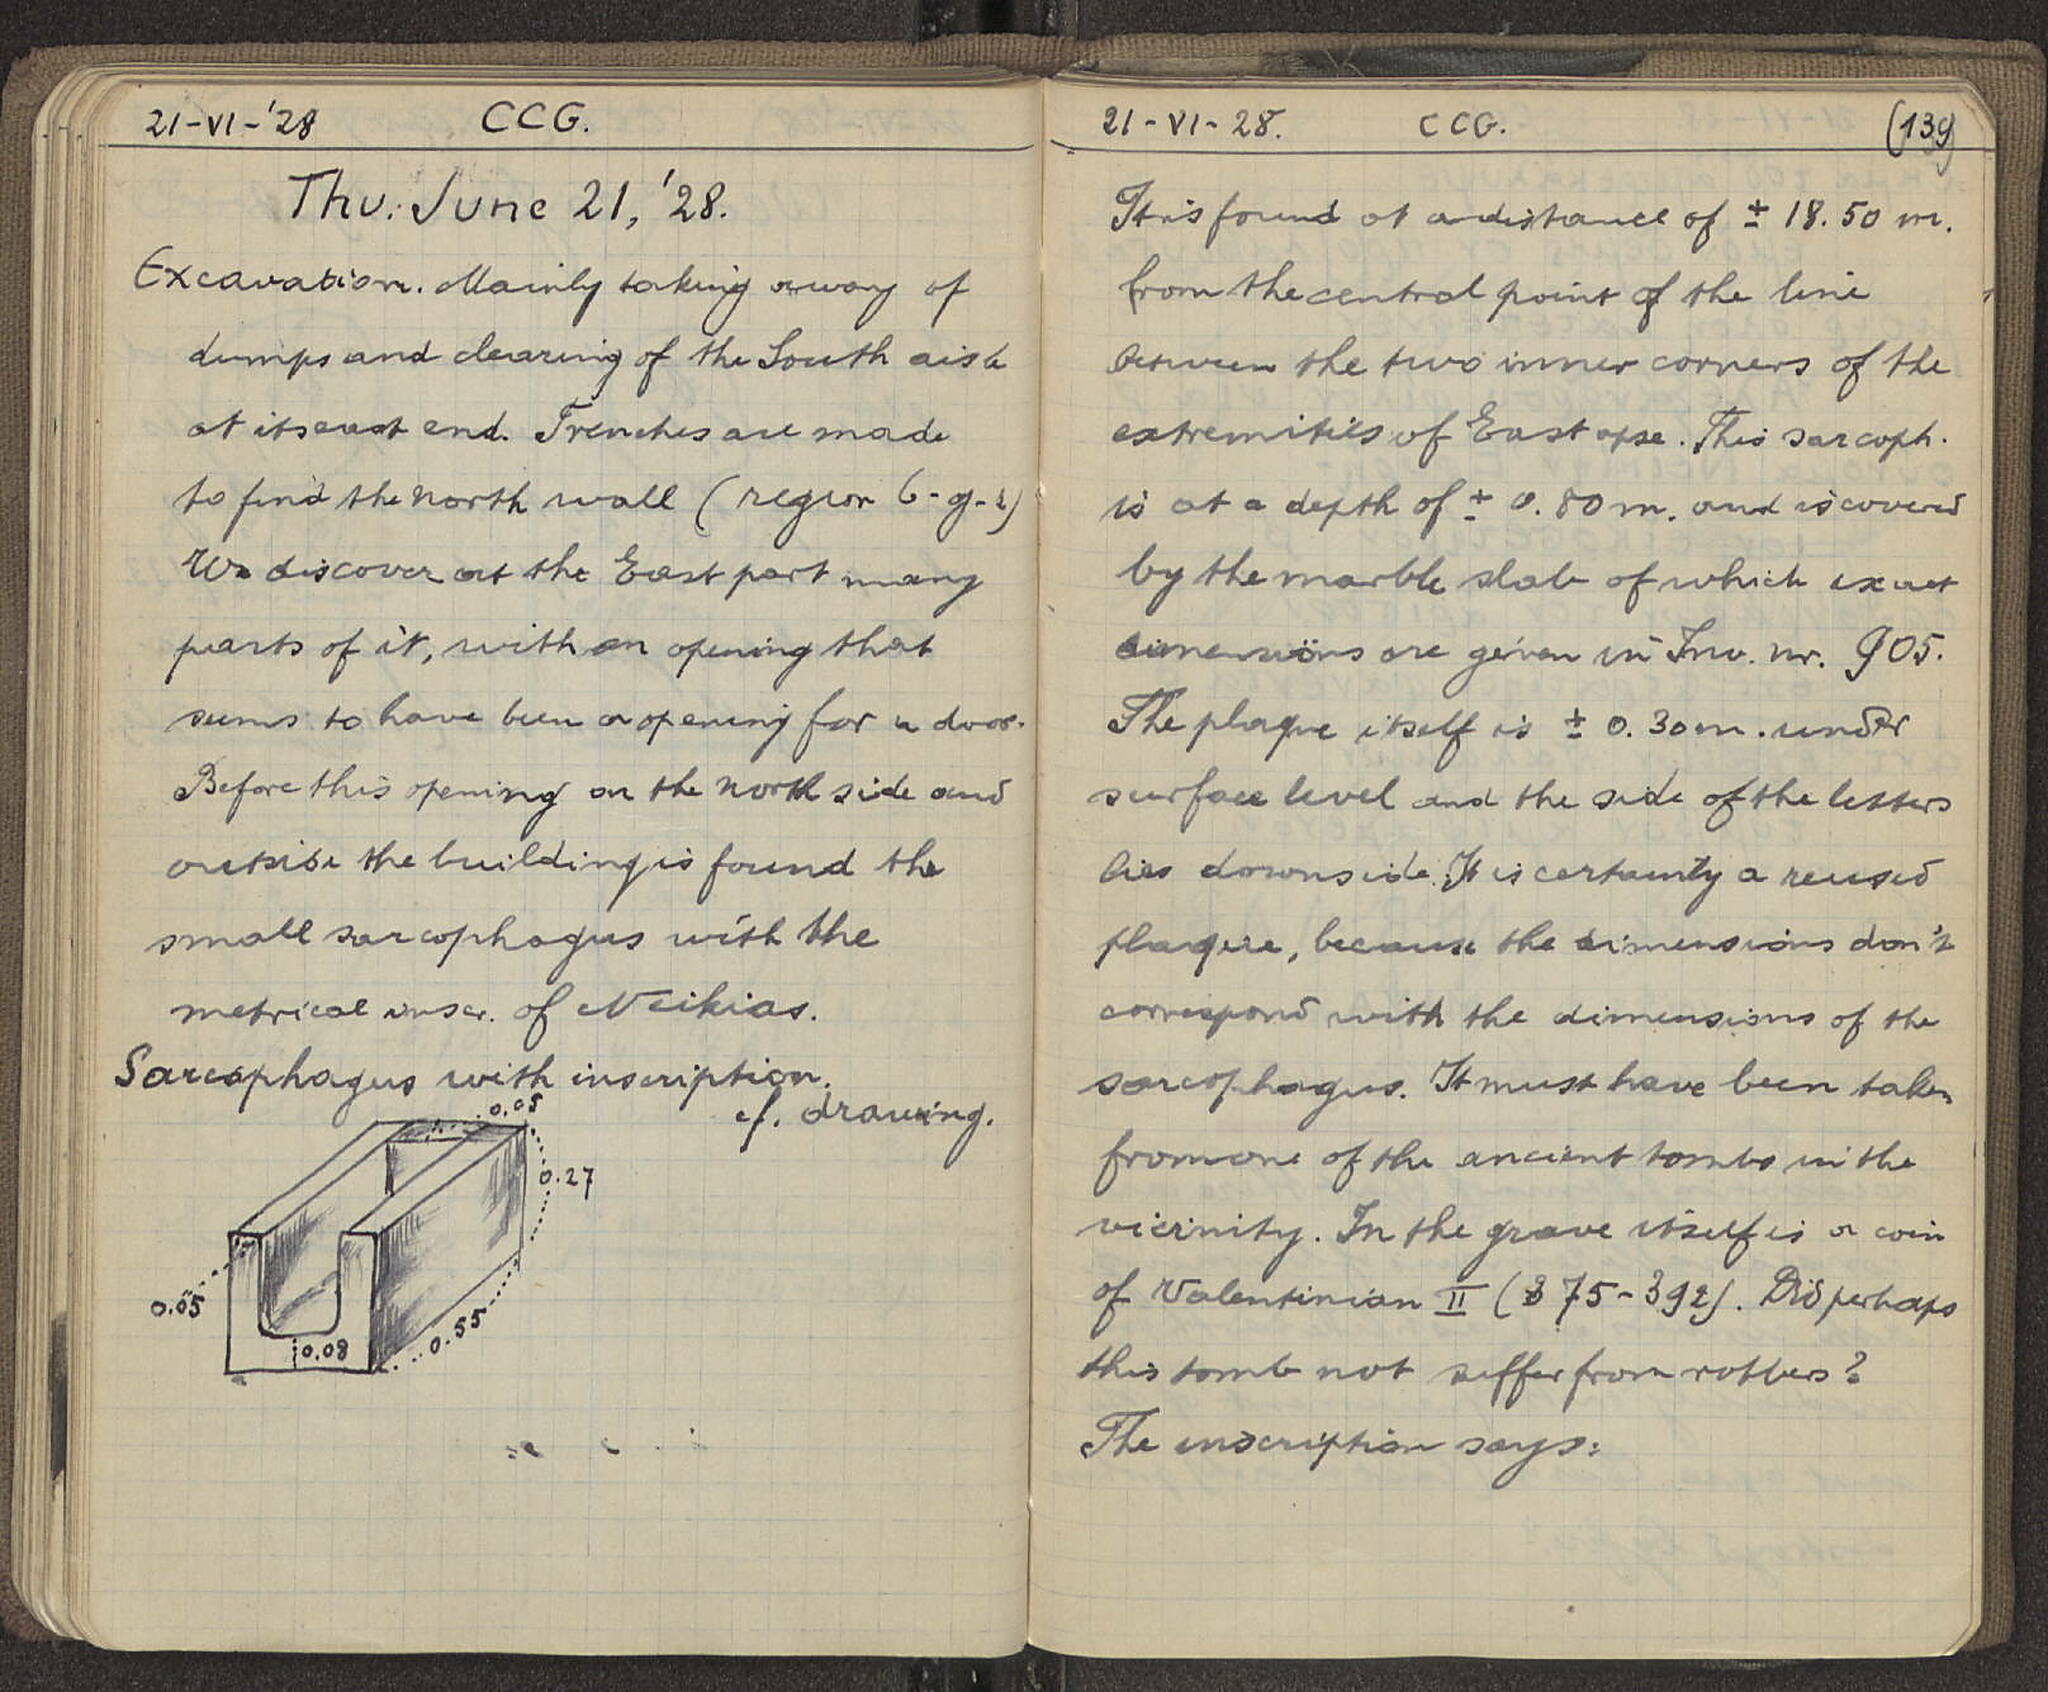 21-VI-'28 CCG.
Thu. June 21, '28.
Excavation. Mainly taking away of
dumps and clearing of the South aisle
at its east end. Trenches are made
to find the north wall (region 6-g-2)
We discover at the East part many
parts of it, with an opening that
seems to have been a opening for a door.
Before this opening on the north side and
outside the building is found the
small sarcophagus with the
metrical inscr. of Neikias.
Sarcophagus with inscription.
cf. drawing.
0.05
0.27
0.05
0.08
0.55
21-VI-28. CCG. (139)
It is found at a distance of ± 18.50 m.
from the central point of the line
between the two inner corners of the
extremities of East apse. This sarcoph.
is at a depth of ± 0.80 m. and is covered
by the marble slab of which exact
dimensions are given in Inv. nr. 905.
The plaque itself is ± 0.30 m. under
surface level and the side of the letters
lies downside. It is certainty a reused
plaque, because the dimensions don't
correspond with the dimensions of the
sarcophagus. It must have been taken
from one of the ancient tombs in the
vicinity. In the grave itself is a coin
of Valentinian II (375-392). Did perhaps
this tomb not suffer from robbers?
The inscription says: